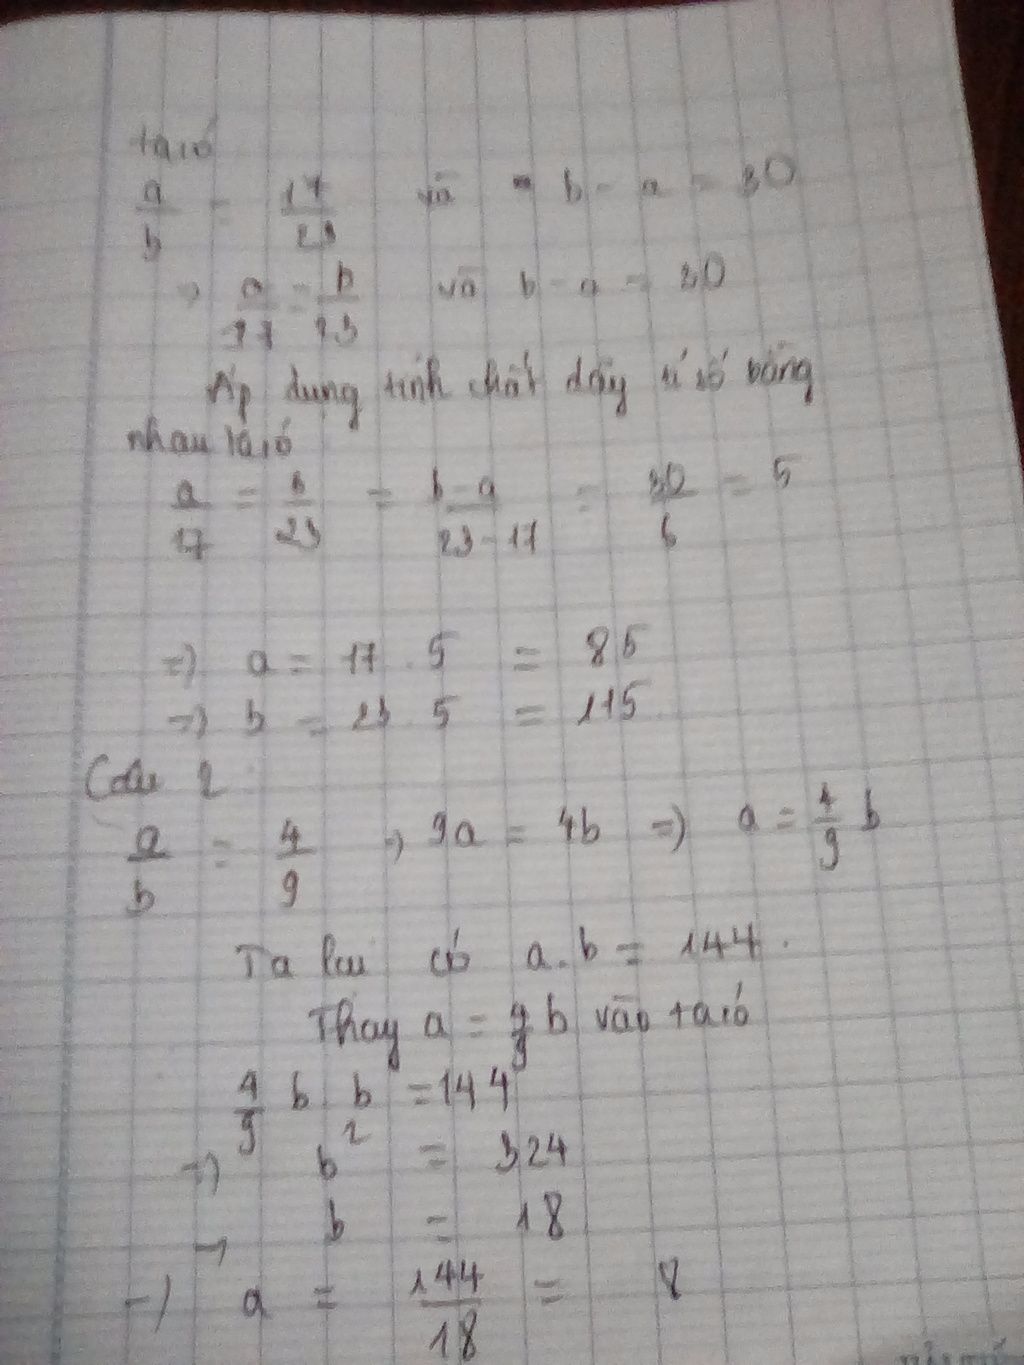 ta có
a/b = 17/23 và b - a = 30
=> a/17 = b/23 và b - a = 30
Áp dụng tính chất dãy tỉ số bằng
nhau ta có
a/17 = b/23 = b-a/23-17 = 30/6 = 5
=> a = 17 . 5 = 85
=> b = 23 . 5 = 115
Câu 2
a/b = 4/9 => 9a = 4b => a = 4/9 b
Ta lại có a.b = 144.
Thay a = 4/9 b vào ta có
4/9 b b = 144
=> b² = 324
=> b = 18
=> a = 144/18 = 8